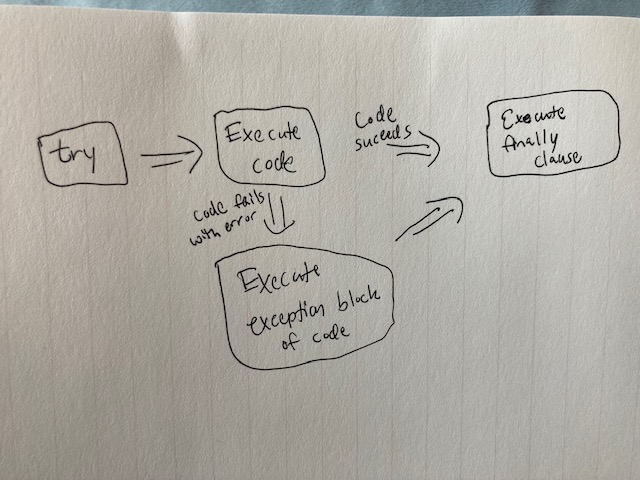 try
Execute
code
Code
succeeds
Execute
finally
clause
code fails
with error
Execute
exception block
of code